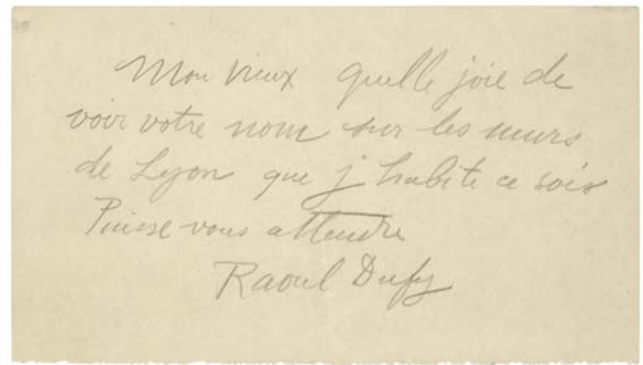 Mon vieux quelle joie de
voir votre nom sur les murs
de Lyon que j'habite ce soir
Puisse vous attendre
Raoul Dufy